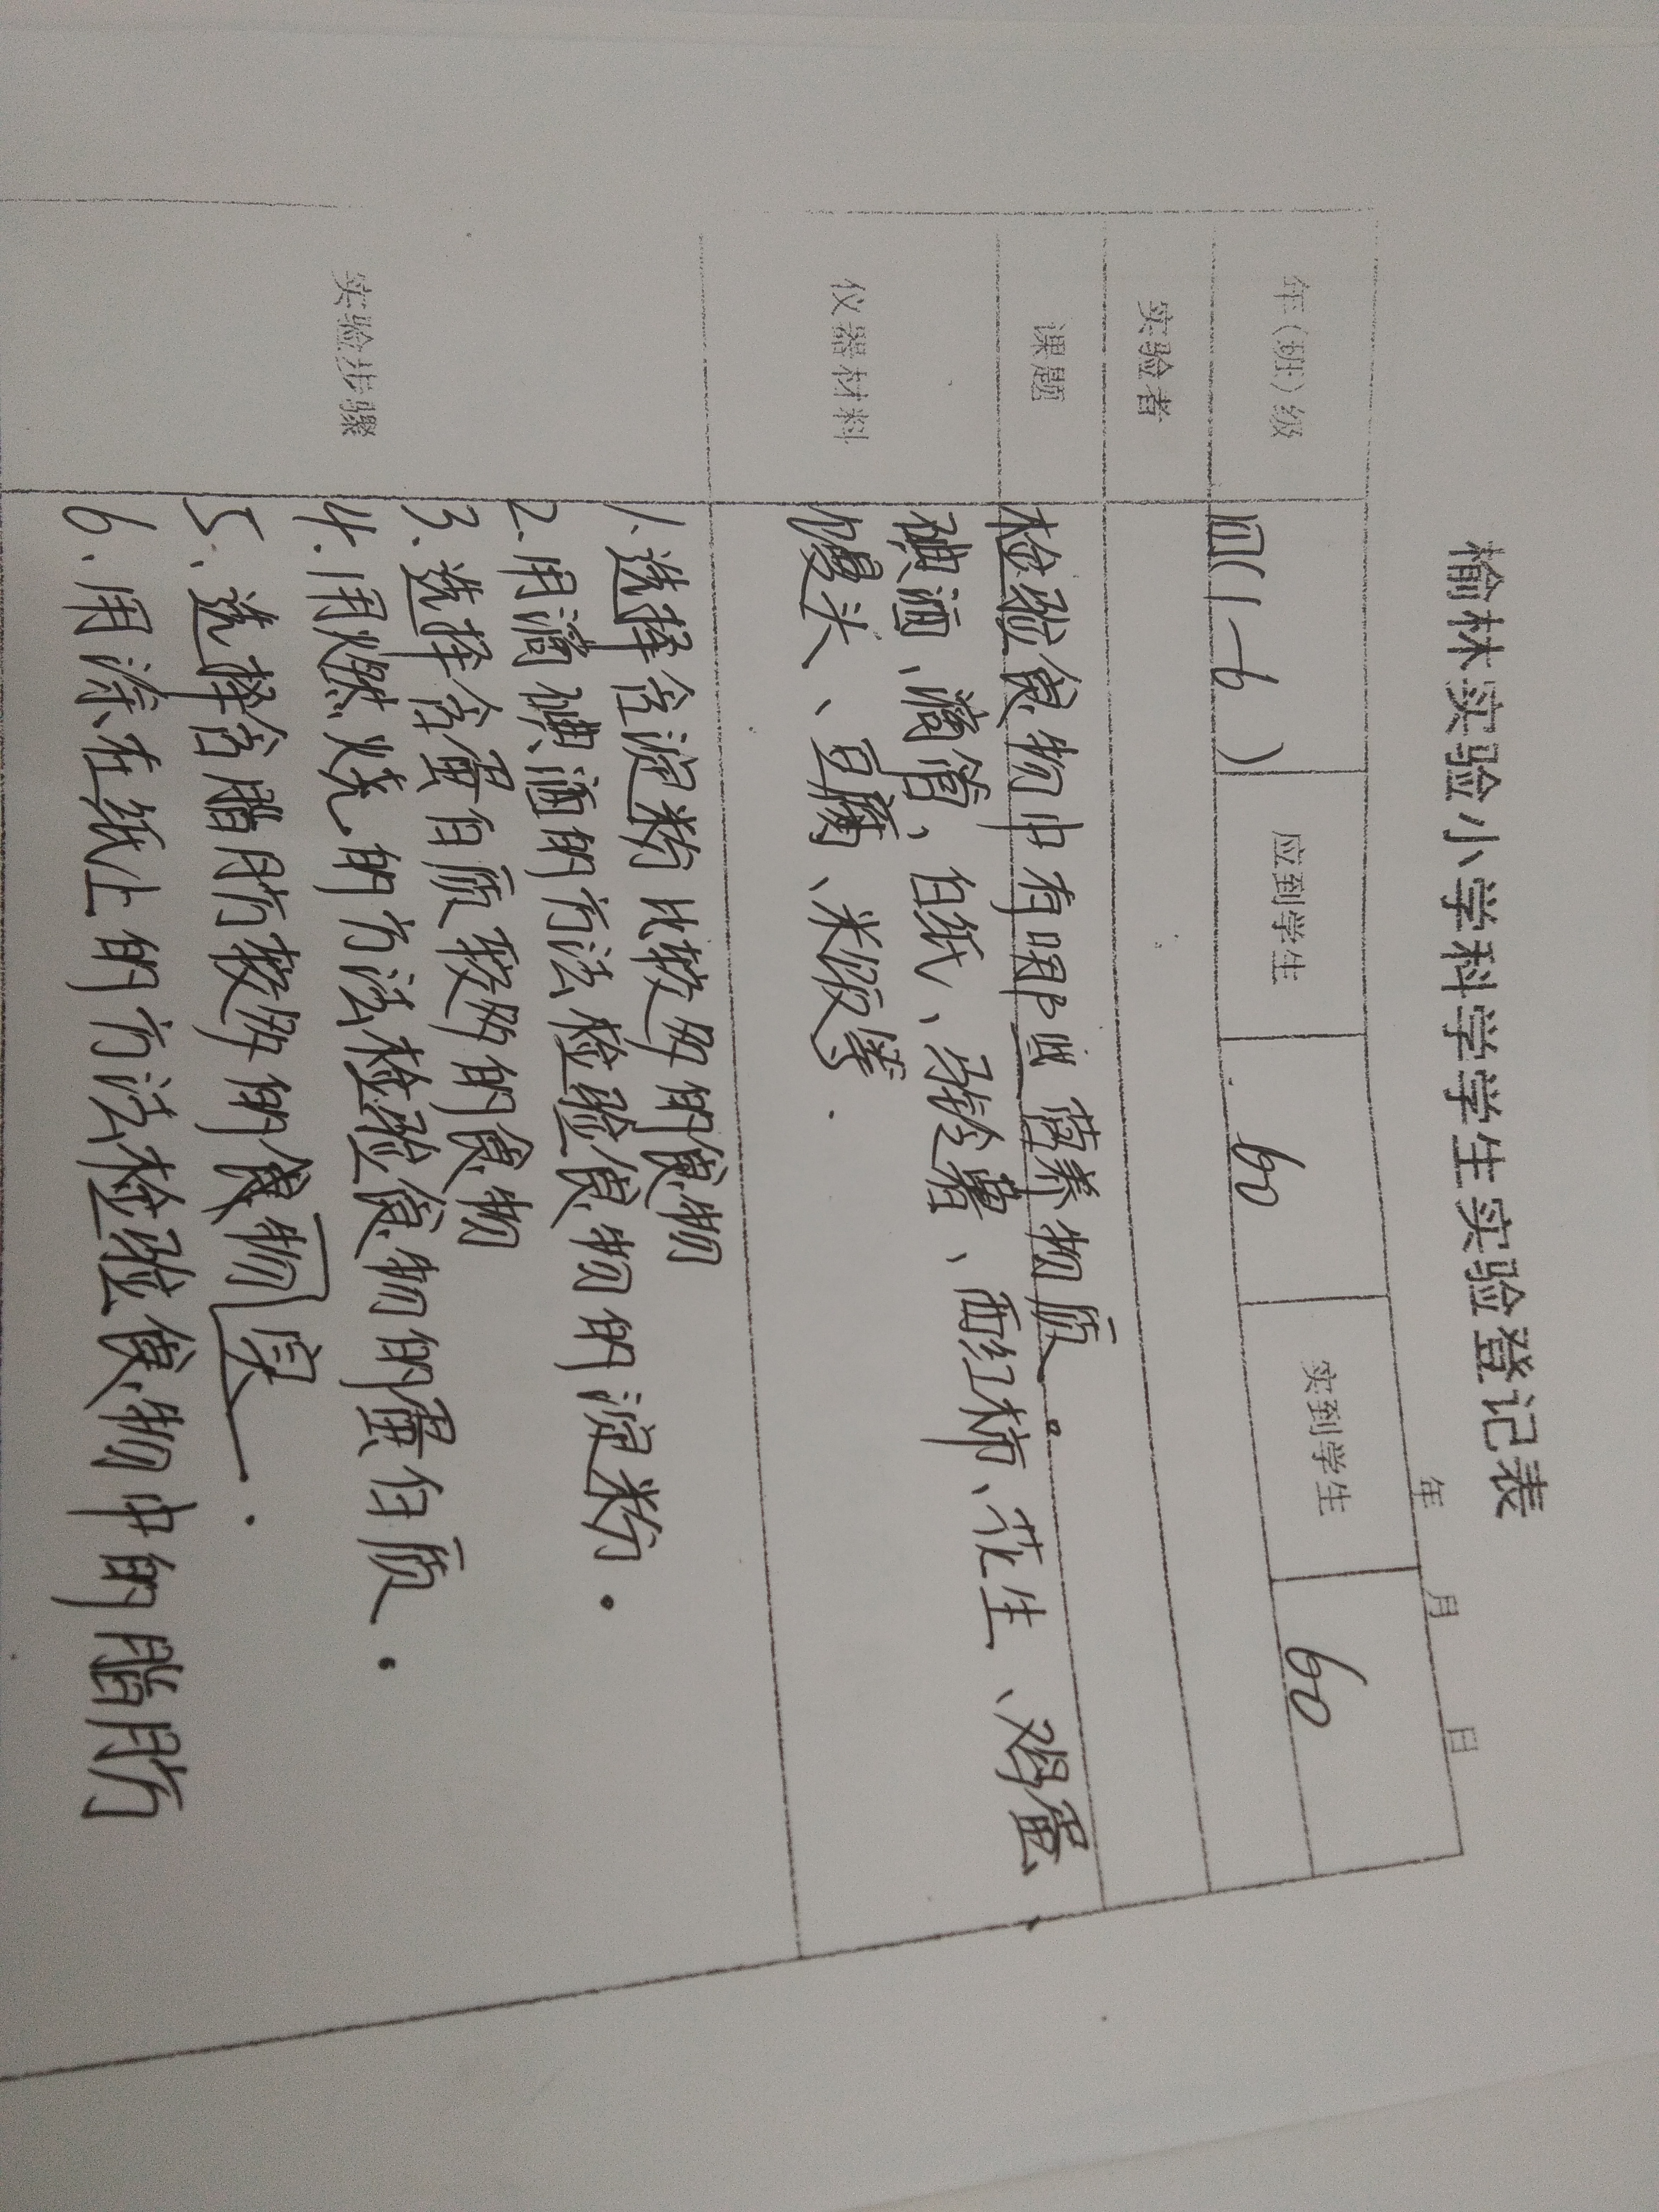 榆林实验小学科学学生实验登记表
年 月 日
年(班)级 四(1-6) 应到学生 60 实到学生 60
实验者
课题 检验食物中有哪些营养物质。
仪器材料 碘酒、滴管、白纸、马铃薯、西红柿、花生、鸡蛋
馒头、豆腐、米饭等.
实验步骤
1.选择含淀粉比较多的食物
2.用滴碘酒的方法检验食物的淀粉.
3.选择含蛋白质较多的食物
4.用燃烧的方法检验食物的蛋白质.
5.选择含脂肪较多的食物.
6.用涂在纸上的方法检验食物中的脂肪